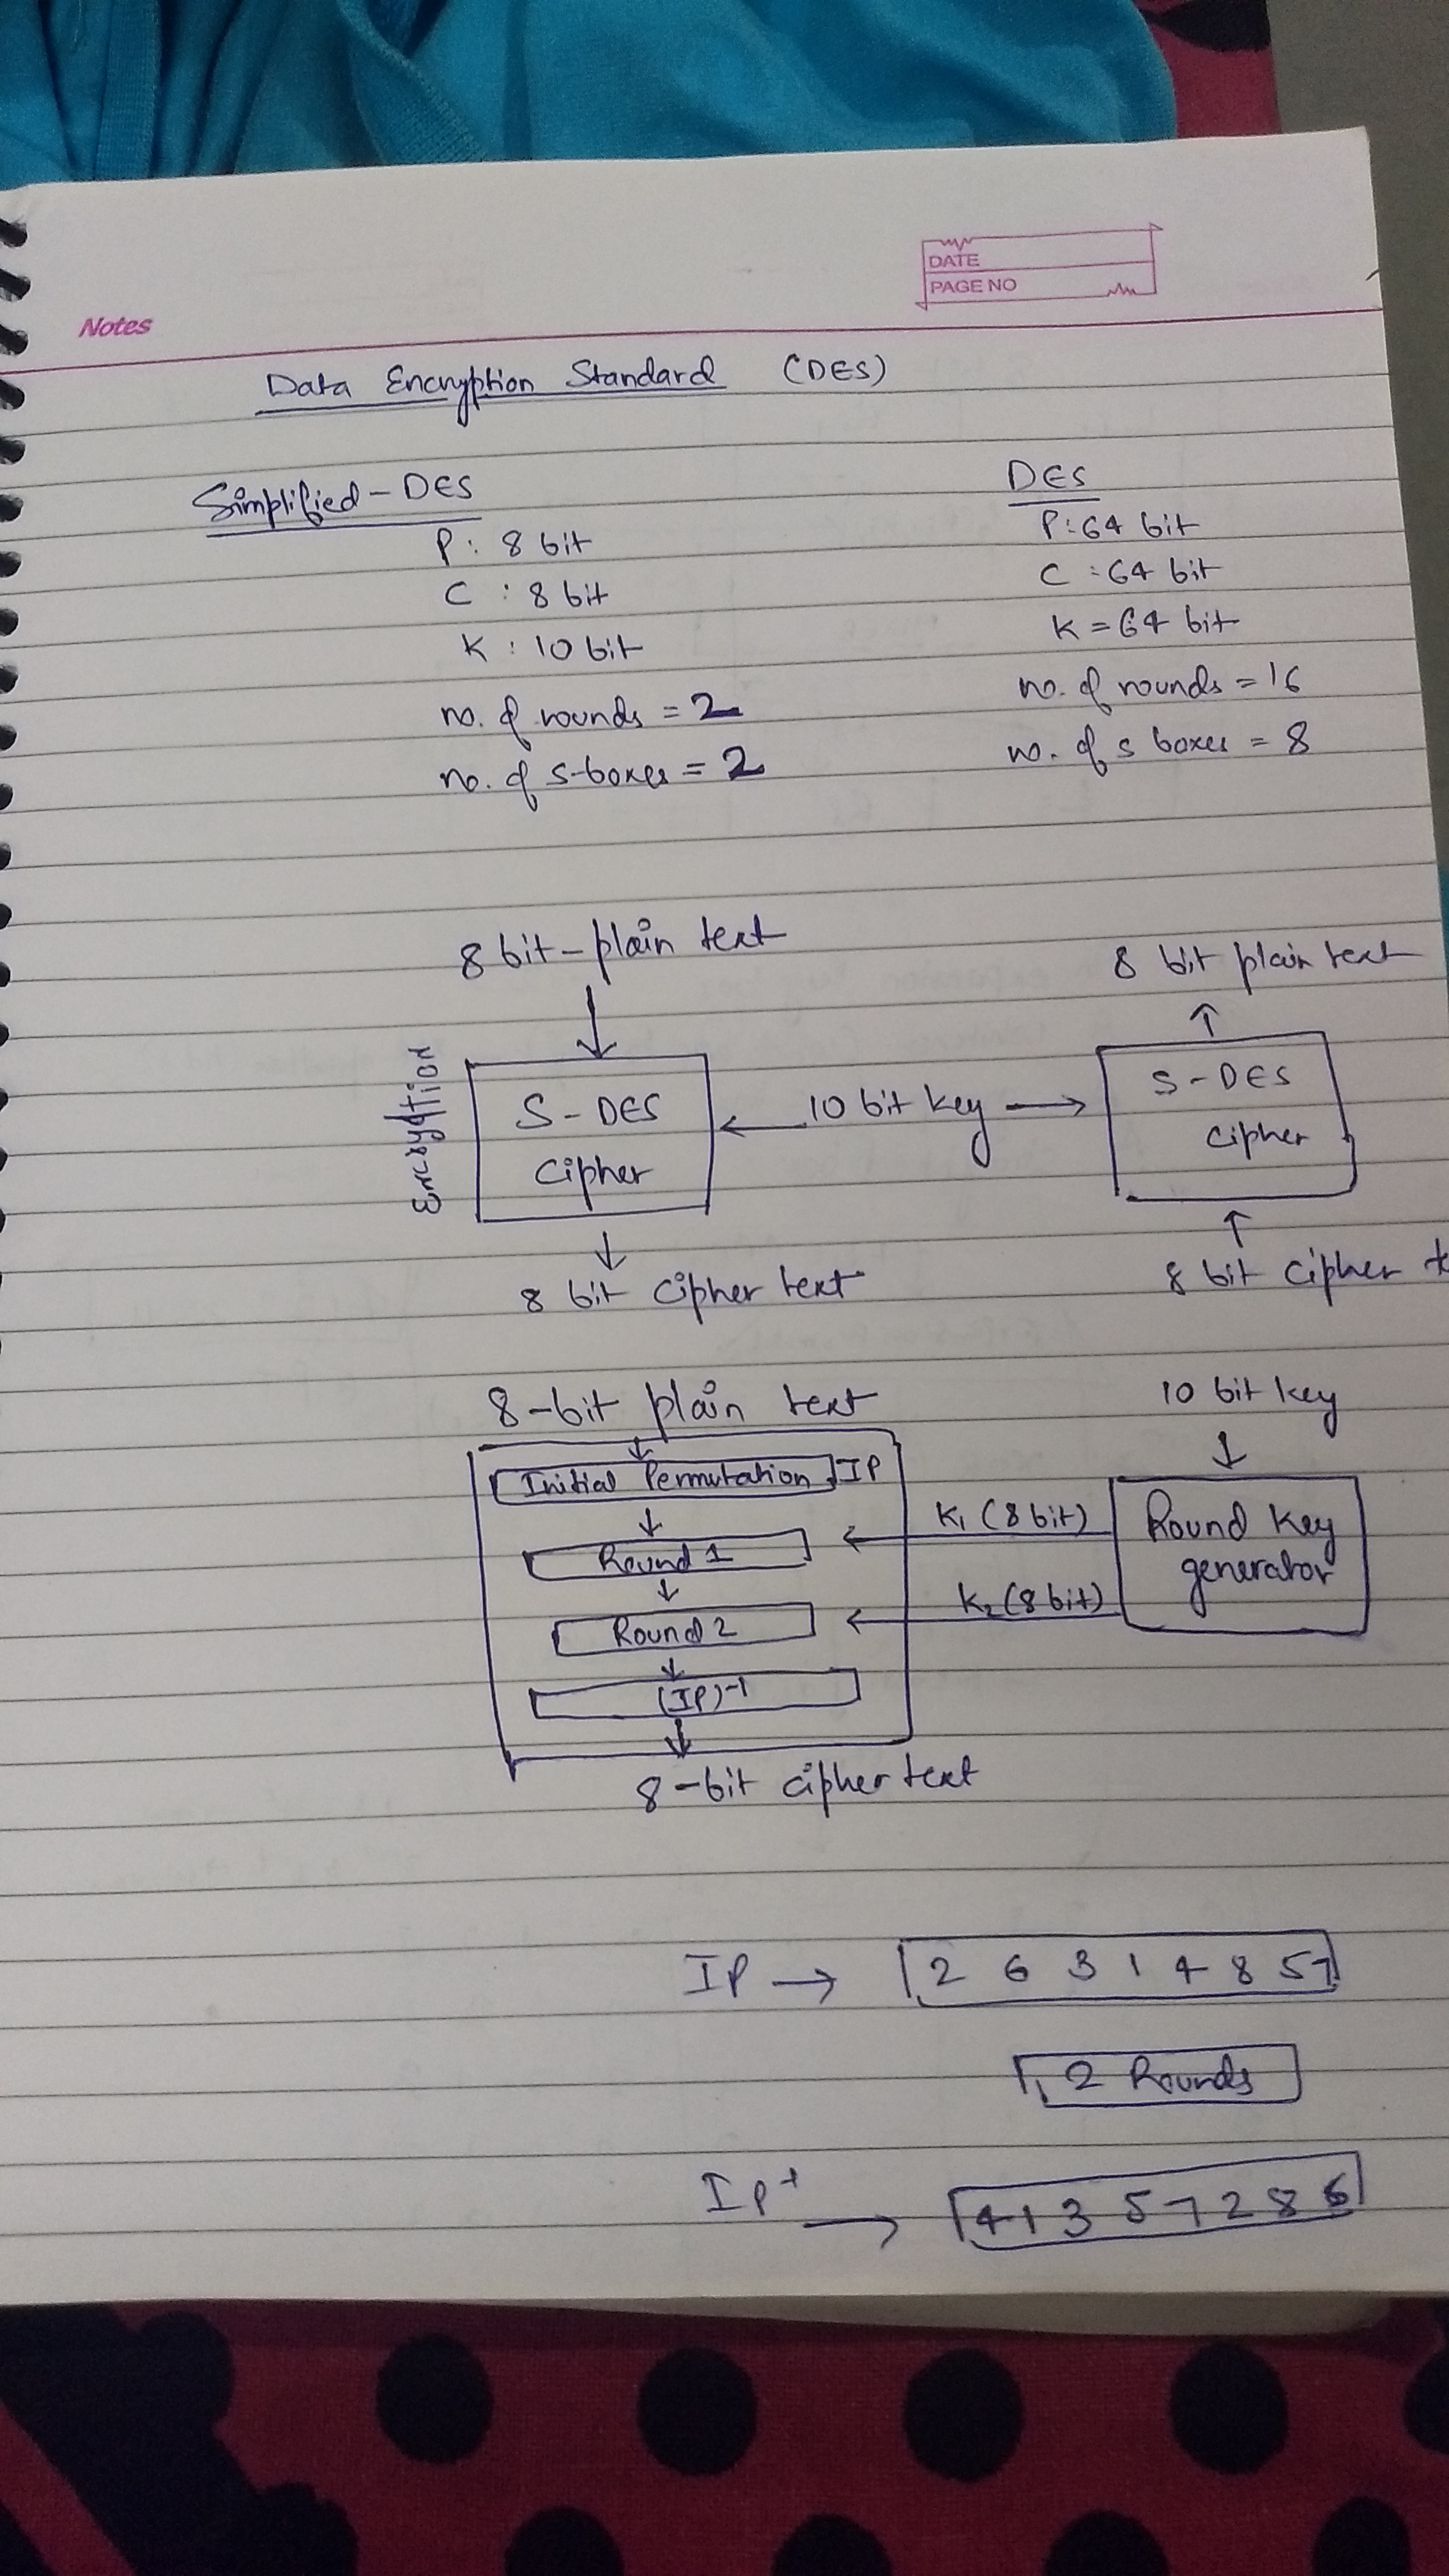 DATE
PAGE NO
Notes
Data Encryption Standard (DES)
Simplified - DES
P : 8 bit
C : 8 bit
K : 10 bit
no. of rounds = 2
no. of s-boxes = 2
DES
P : 64 bit
C : 64 bit
K = 64 bit
no. of rounds = 16
no. of s boxes = 8
8 bit - plain text
Encryption
S - DES
Cipher
← 10 bit key →
8 bit cipher text
8 bit plain text
S - DES
Cipher
8 bit cipher
8-bit plain text
Initial Permutation IP
Round 1
Round 2
(IP)⁻¹
8-bit cipher text
10 bit key
Round Key
generator
K₁ (8 bit)
K₂ (8 bit)
IP → 2 6 3 1 4 8 5 7
2 Rounds
IP⁻¹ → 4 1 3 5 7 2 8 6